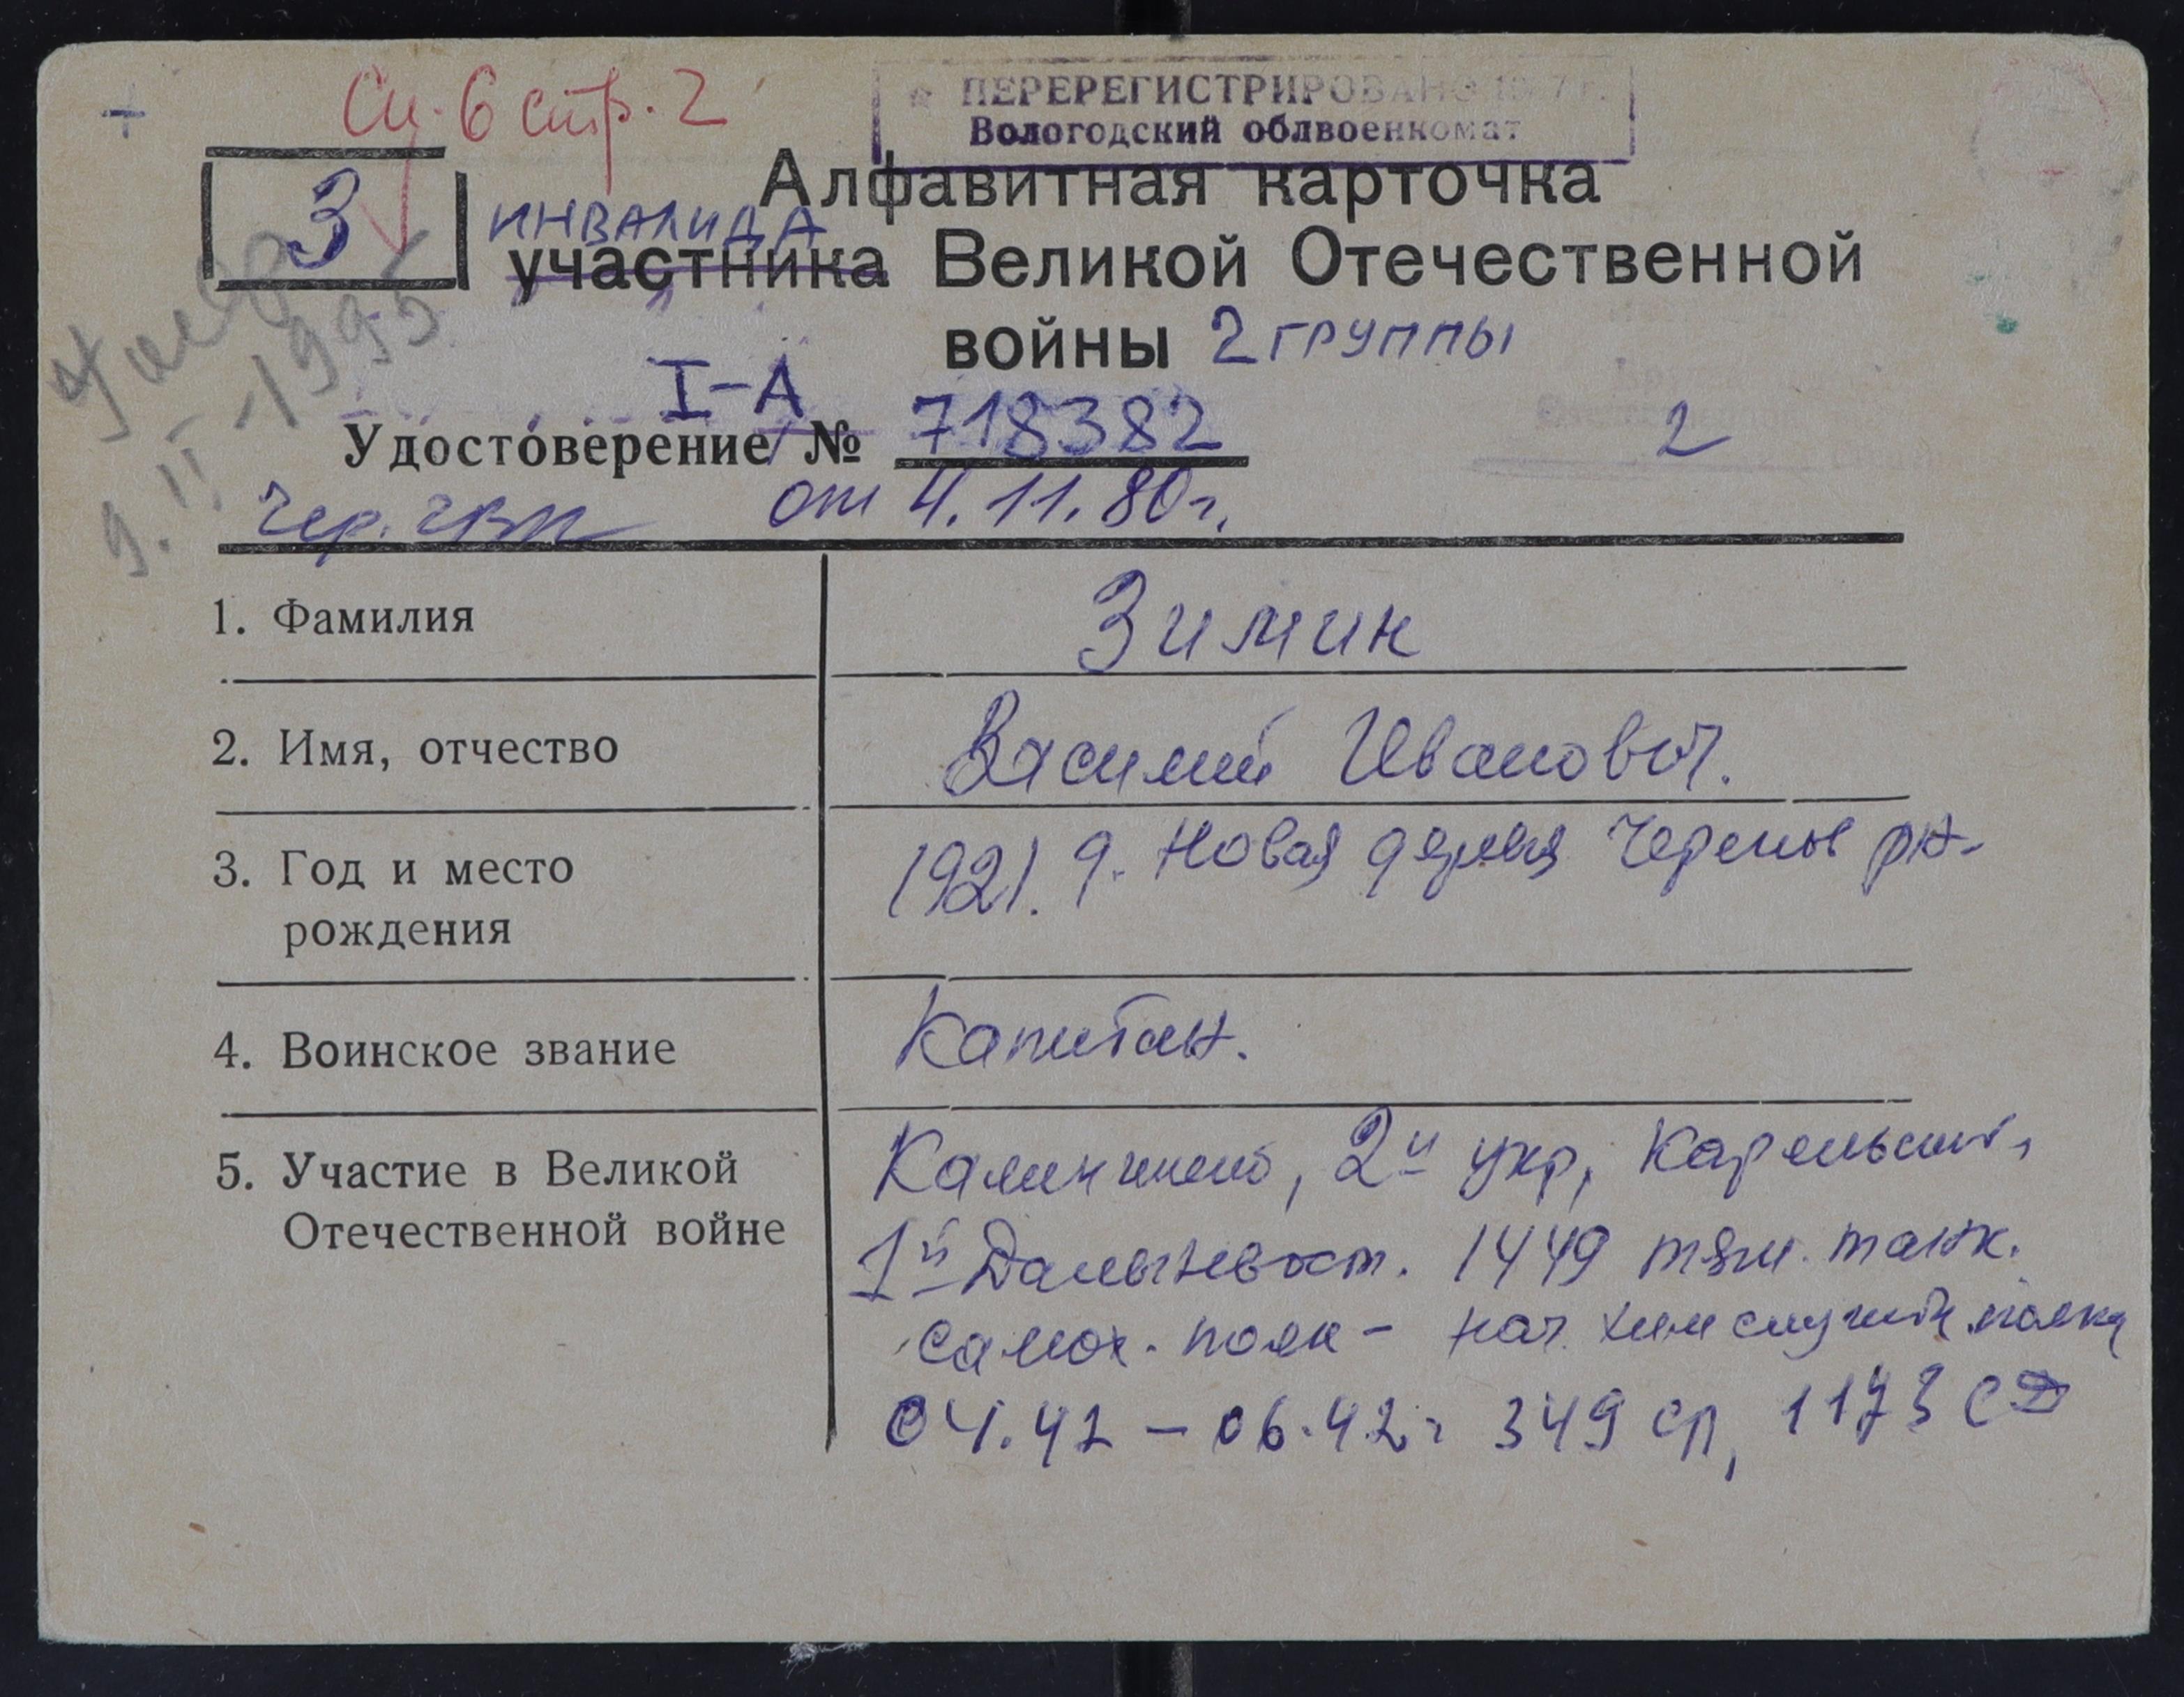 Сп. 6 стр. 2
ПЕРЕРЕГИСТРИРОВАНО
Вологодский облвоенкомат
З
Алфавитная карточка
ИНВАЛИДА
участника Великой Отечественной
войны 2 ГРУППЫ
Умер
9.II-1995
I-А
Удостоверение № 718382
2
Чер. ГВК от 4.11.80г.
1. Фамилия Зимин
2. Имя, отчество Василий Иванович.
3. Год и место 1921. д. Новая деревня Черепов р-н
рождения
4. Воинское звание Капитан.
5. Участие в Великой Калининский, 2й укр, Карельский,
Отечественной войне 1й Дальневост. 1449 тяж. танк.
самох. полк - нач. химслужбы полка
04.42 - 06.42г 349 сп, 1173 сд